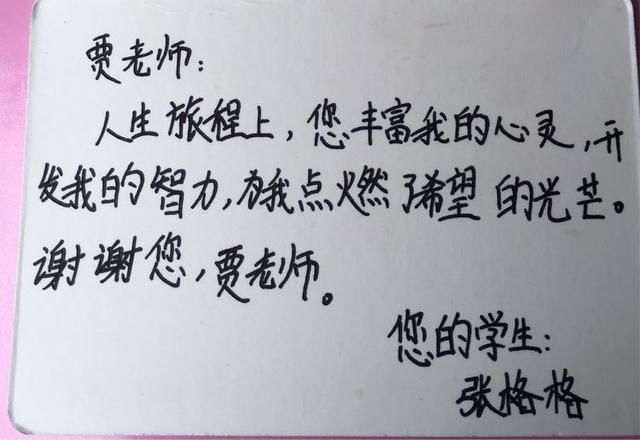 贾老师:
人生旅程上,您丰富我的心灵,开
发我的智力,为我点燃了希望的光芒。
谢谢您,贾老师。
您的学生:
张格格